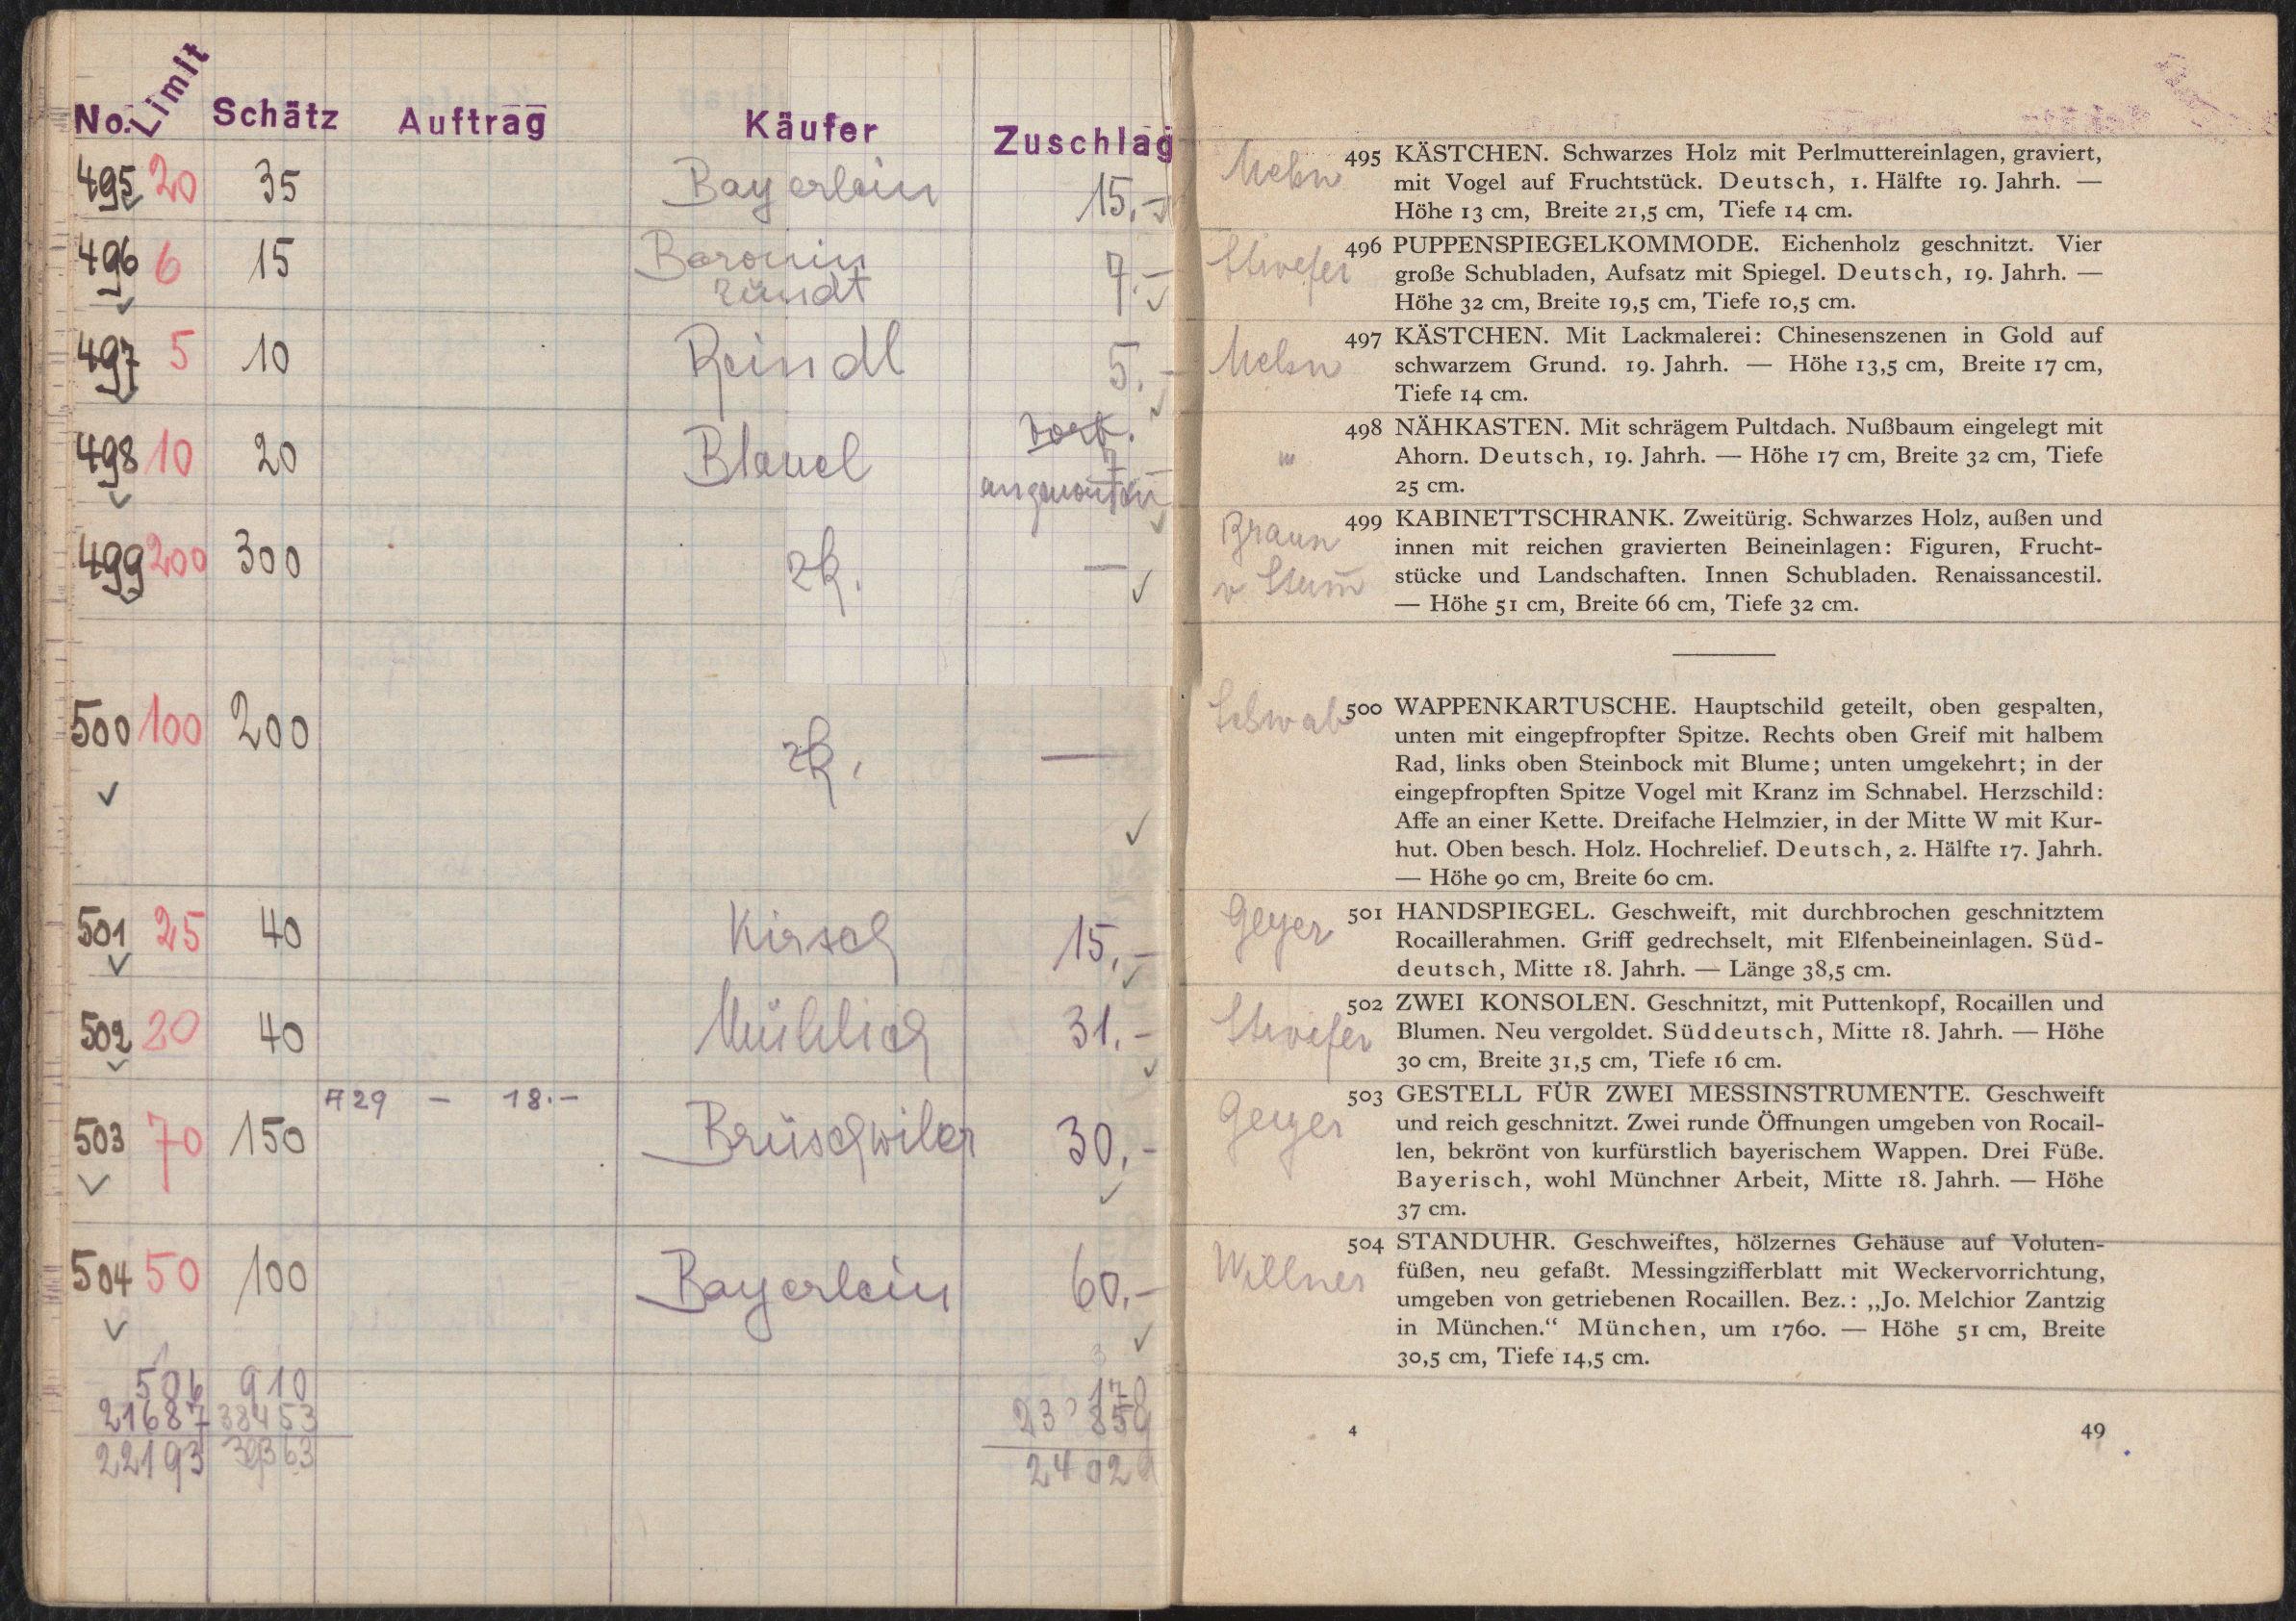 No. Limit Schätz Auftrag Käufer Zuschlag
495 20 35 Bayerlein 15.-
496 6 15 Baronin 7.-
ründt
497 5 10 Reindl 5.-
498 10 20 Blauel vorb.
7
499 200 300 zk. —
500 100 200 zk. —
501 25 40 Kirsch 15.-
502 20 40 Mühlich 31.-
A 29 - 18.-
503 70 150 Brüschwiler 30.-
504 50 100 Bayerlein 60.-
506 910 170
21687 38453 23 859
22193 39363 24 029
495 KÄSTCHEN. Schwarzes Holz mit Perlmuttereinlagen, graviert,
mit Vogel auf Fruchtstück. Deutsch, 1. Hälfte 19. Jahrh. —
Höhe 13 cm, Breite 21,5 cm, Tiefe 14 cm.
496 PUPPENSPIEGELKOMMODE. Eichenholz geschnitzt. Vier
große Schubladen, Aufsatz mit Spiegel. Deutsch, 19. Jahrh. —
Höhe 32 cm, Breite 19,5 cm, Tiefe 10,5 cm.
497 KÄSTCHEN. Mit Lackmalerei: Chinesenszenen in Gold auf
schwarzem Grund. 19. Jahrh. — Höhe 13,5 cm, Breite 17 cm,
Tiefe 14 cm.
498 NÄHKASTEN. Mit schrägem Pultdach. Nußbaum eingelegt mit
" Ahorn. Deutsch, 19. Jahrh. — Höhe 17 cm, Breite 32 cm, Tiefe
25 cm.
Braun 499 KABINETTSCHRANK. Zweitürig. Schwarzes Holz, außen und
innen mit reichen gravierten Beineinlagen: Figuren, Frucht-
v Stum̄ stücke und Landschaften. Innen Schubladen. Renaissancestil.
— Höhe 51 cm, Breite 66 cm, Tiefe 32 cm.
Schwab 500 WAPPENKARTUSCHE. Hauptschild geteilt, oben gespalten,
unten mit eingepfropfter Spitze. Rechts oben Greif mit halbem
Rad, links oben Steinbock mit Blume; unten umgekehrt; in der
eingepfropften Spitze Vogel mit Kranz im Schnabel. Herzschild:
Affe an einer Kette. Dreifache Helmzier, in der Mitte W mit Kur-
hut. Oben besch. Holz. Hochrelief. Deutsch, 2. Hälfte 17. Jahrh.
— Höhe 90 cm, Breite 60 cm.
Geyer 501 HANDSPIEGEL. Geschweift, mit durchbrochen geschnitztem
Rocaillerahmen. Griff gedrechselt, mit Elfenbeineinlagen. Süd-
deutsch, Mitte 18. Jahrh. — Länge 38,5 cm.
502 ZWEI KONSOLEN. Geschnitzt, mit Puttenkopf, Rocaillen und
Blumen. Neu vergoldet. Süddeutsch, Mitte 18. Jahrh. — Höhe
30 cm, Breite 31,5 cm, Tiefe 16 cm.
Geyer 503 GESTELL FÜR ZWEI MESSINSTRUMENTE. Geschweift
und reich geschnitzt. Zwei runde Öffnungen umgeben von Rocail-
len, bekrönt von kurfürstlich bayerischem Wappen. Drei Füße.
Bayerisch, wohl Münchner Arbeit, Mitte 18. Jahrh. — Höhe
37 cm.
Willner 504 STANDUHR. Geschweiftes, hölzernes Gehäuse auf Voluten-
füßen, neu gefaßt. Messingzifferblatt mit Weckervorrichtung,
umgeben von getriebenen Rocaillen. Bez.: „Jo. Melchior Zantzig
in München.“ München, um 1760. — Höhe 51 cm, Breite
30,5 cm, Tiefe 14,5 cm.
4 49